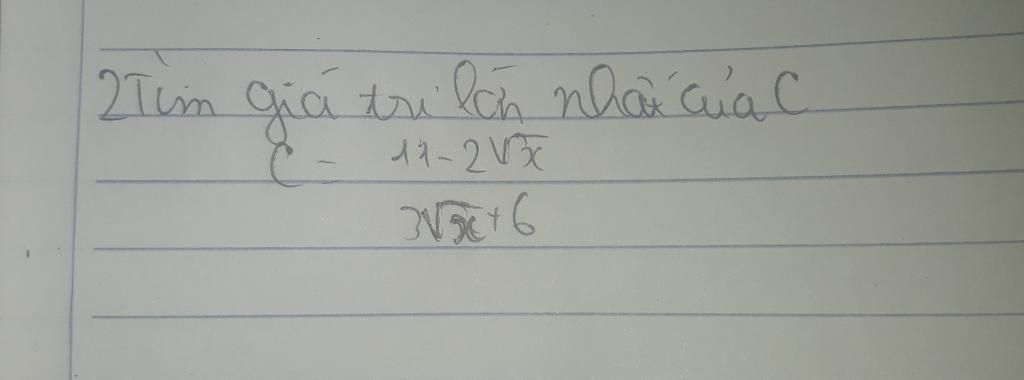 2 Tìm giá trị lớn nhất của C
C = 11 - 2√x
3√x + 6